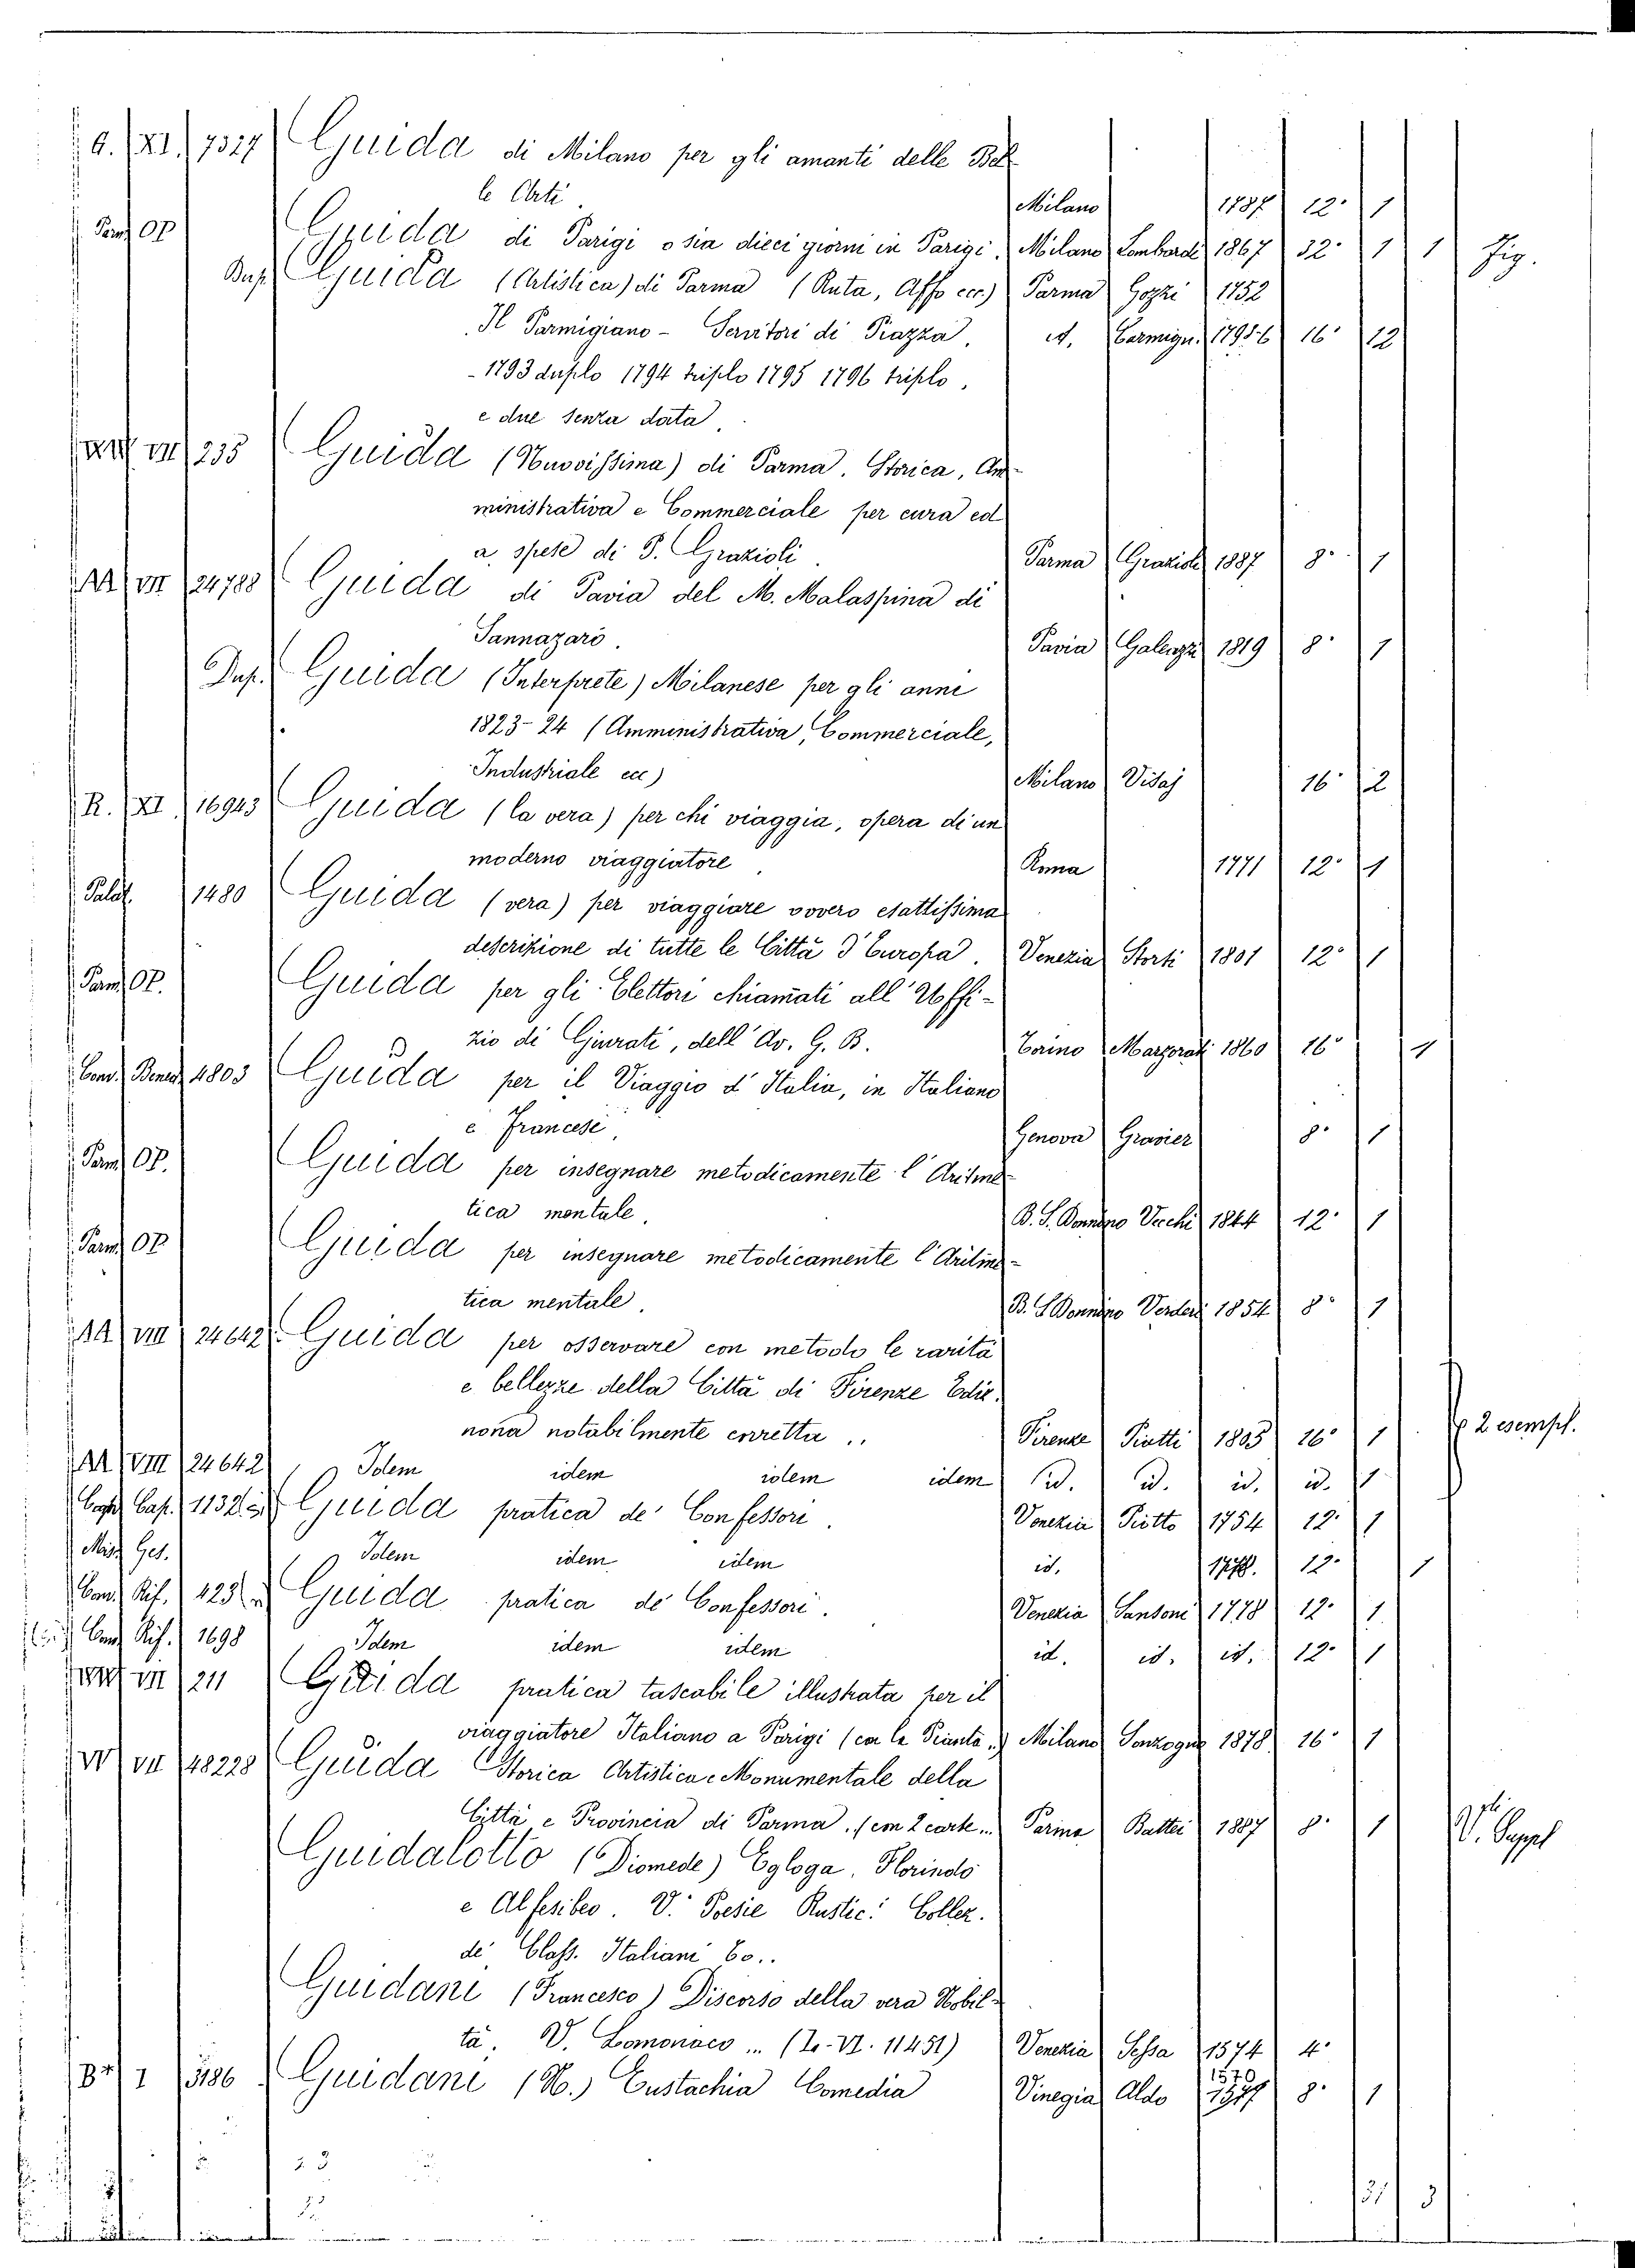 G. XI. 7327 Guida di Milano per gli amanti delle Bel
le Arti Milano 1787 12° 1
Parm OP Guida di Parigi o sia dieci giorni in Parigi. Milano Lombardi 1867 32° 1 1 Fig.
Dup. Guida (Artistica) di Parma (Ruta, Affo ecc.) Parma Gozzi 1752
Il Parmigiano - Servitori di Piazza. id. Carmign. 1795-6 16° 12
- 1793 duplo 1794 triplo 1795 1796 triplo,
e due senza data.
VII 235 Guida (Nuovissima) di Parma. Storica, Am-
ministrativa e Commerciale per cura ed
a spese di P. Grazioli. Parma Grazioli 1887 8° 1
AA VII 24788 Guida di Pavia del M. Malaspina di
Sannazaro. Pavia Galeazzi 1819 8° 1
Dup. Guida (Interprete) Milanese per gli anni
1823-24 (Amministrativa, Commerciale,
Industriale ecc) Milano Visaj 16° 2
R. XI 16943 Guida (la vera) per chi viaggia, opera di un
moderno viaggiatore. Roma 1771 12° 1
Palat. 1480 Guida (vera) per viaggiare ovvero esattissima
descrizione di tutte le Città d'Europa. Venezia Storti 1801 12° 1
Parm OP. Guida per gli Elettori chiamati all'Uffi-
zio di Giurati, dell'Av. G. B. Torino Marzorati 1860 16° 1
Conv. Bened. 4803 Guida per il Viaggio d'Italia, in Italiano
e Francese. Genova Gravier 8° 1
Parm OP. Guida per insegnare metodicamente l'Aritme
tica mentale. B. S. Donnino Vecchi 1844 12° 1
Parm OP Guida per insegnare metodicamente l'Aritme-
tica mentale. B. S. Donnino Verderi 1854 8° 1
AA VIII 24642 Guida per osservare con metodo le rarità
e bellezze della Città di Firenze Ediz.
nona notabilmente corretta .. Firenze Piatti 1805 16° 1 2 esempl.
AA VIII 24642 Idem idem idem idem id. id. id. id. 1
Cap. 1132 Guida pratica de' Confessori. Venezia Piotto 1754 12° 1
Miss Ges. Idem idem idem id. 1778. 12° 1
Conv Rif. 423 Guida pratica de' Confessori. Venezia Sansoni 1778 12° 1
Conv Rif. 1698 Idem idem idem id. id. id. 12° 1
VII 211 Guida pratica tascabile illustrata per il
viaggiatore Italiano a Parigi (con la Pianta.) Milano Sonzogno 1878 16° 1
VV VII 48228 Guida Storica Artistica e Monumentale della
Città e Provincia di Parma. (con 2 carte.. Parma Battei 1887 8° 1 V. Suppl
Guidalotto (Diomede) Egloga. Florindo
e Alfesibeo. V. Poesie Rustic: Collez.
di Class. Italiani 60..
Guidani (Francesco) Discorso della vera Nobil-
tà. V. Lomonaco ... (Z.-VI. 11451) Venezia Sessa 1574 4°
1 5186 Guidani (N.) Eustachia Comedia Vinegia Aldo 1570 8° 1
31 3